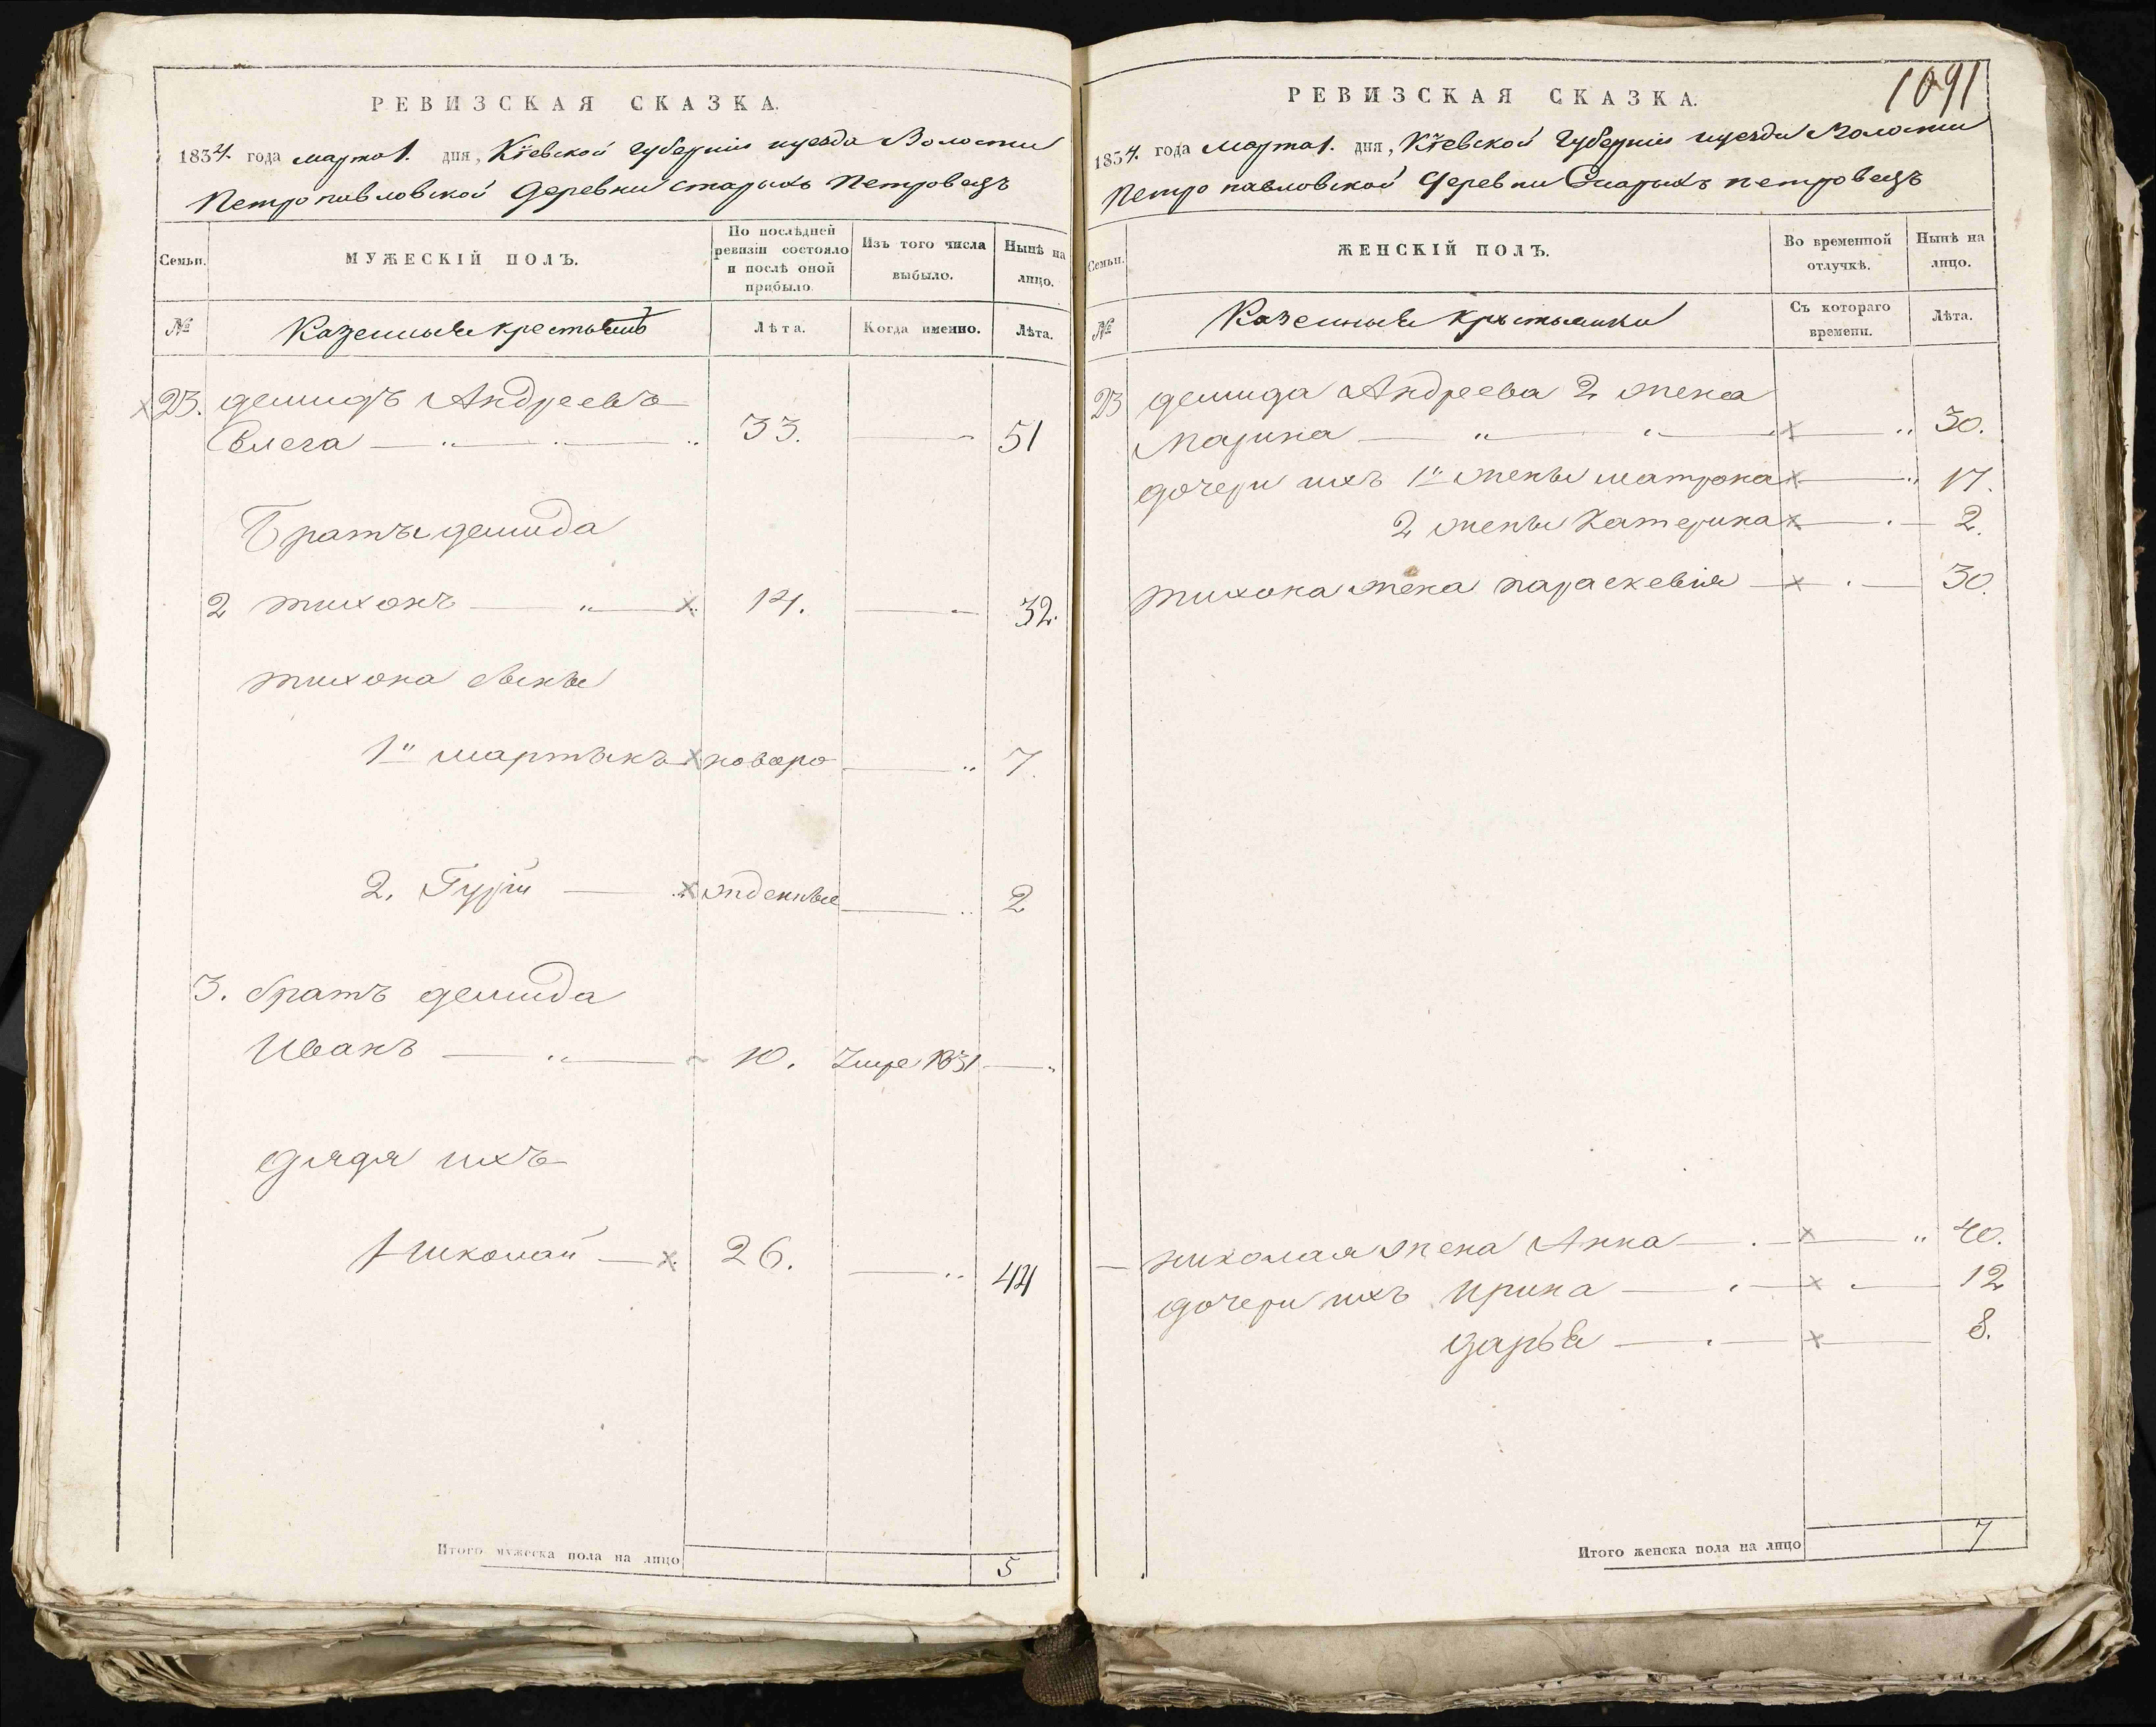 РЕВИЗСКАЯ СКАЗКА.
1834. года марта 1. дня, Кіевской губерніи иуезда Волости
Петропавловской Деревни старыхъ Петровецъ
Семьи.
МУЖЕСКІЙ ПОЛЪ.
По послѣдней ревизіи состояло и послѣ оной прибыло.
Изъ того числа выбыло.
Нынѣ на лицо.
№
Казенные крестьяне
Лѣта.
Когда именно.
Лѣта.
23. демидъ Андреевъ
33. 51
Братъя демида
2 тихонъ 14. 32.
тихона сыны
1й мартынъ новоро 7.
2. Гурій жденные 2
3. братъ демида
Иванъ 10. Умре 1831
дядя ихъ
Николай 26. 44
Итого мужеска пола на лицо 5
1091
РЕВИЗСКАЯ СКАЗКА.
1834. года марта 1. дня, Кіевской Губерніи иуезда Волости
Петропавловской Деревни Старыхъ петровецъ
Семьи.
ЖЕНСКІЙ ПОЛЪ.
Во временной отлучкѣ.
Нынѣ на лицо.
№
Казенные крестьянки
Съ котораго времени.
Лѣта.
23 демида Андреева 2 жена
марина 30.
дочери ихъ 1й жены матрона 17.
2 жены Катерина 2.
тихона жена параскевія 30.
николая жена Анна 40.
дочери ихъ Ирина 12
дарья 8.
Итого женска пола на лицо 7